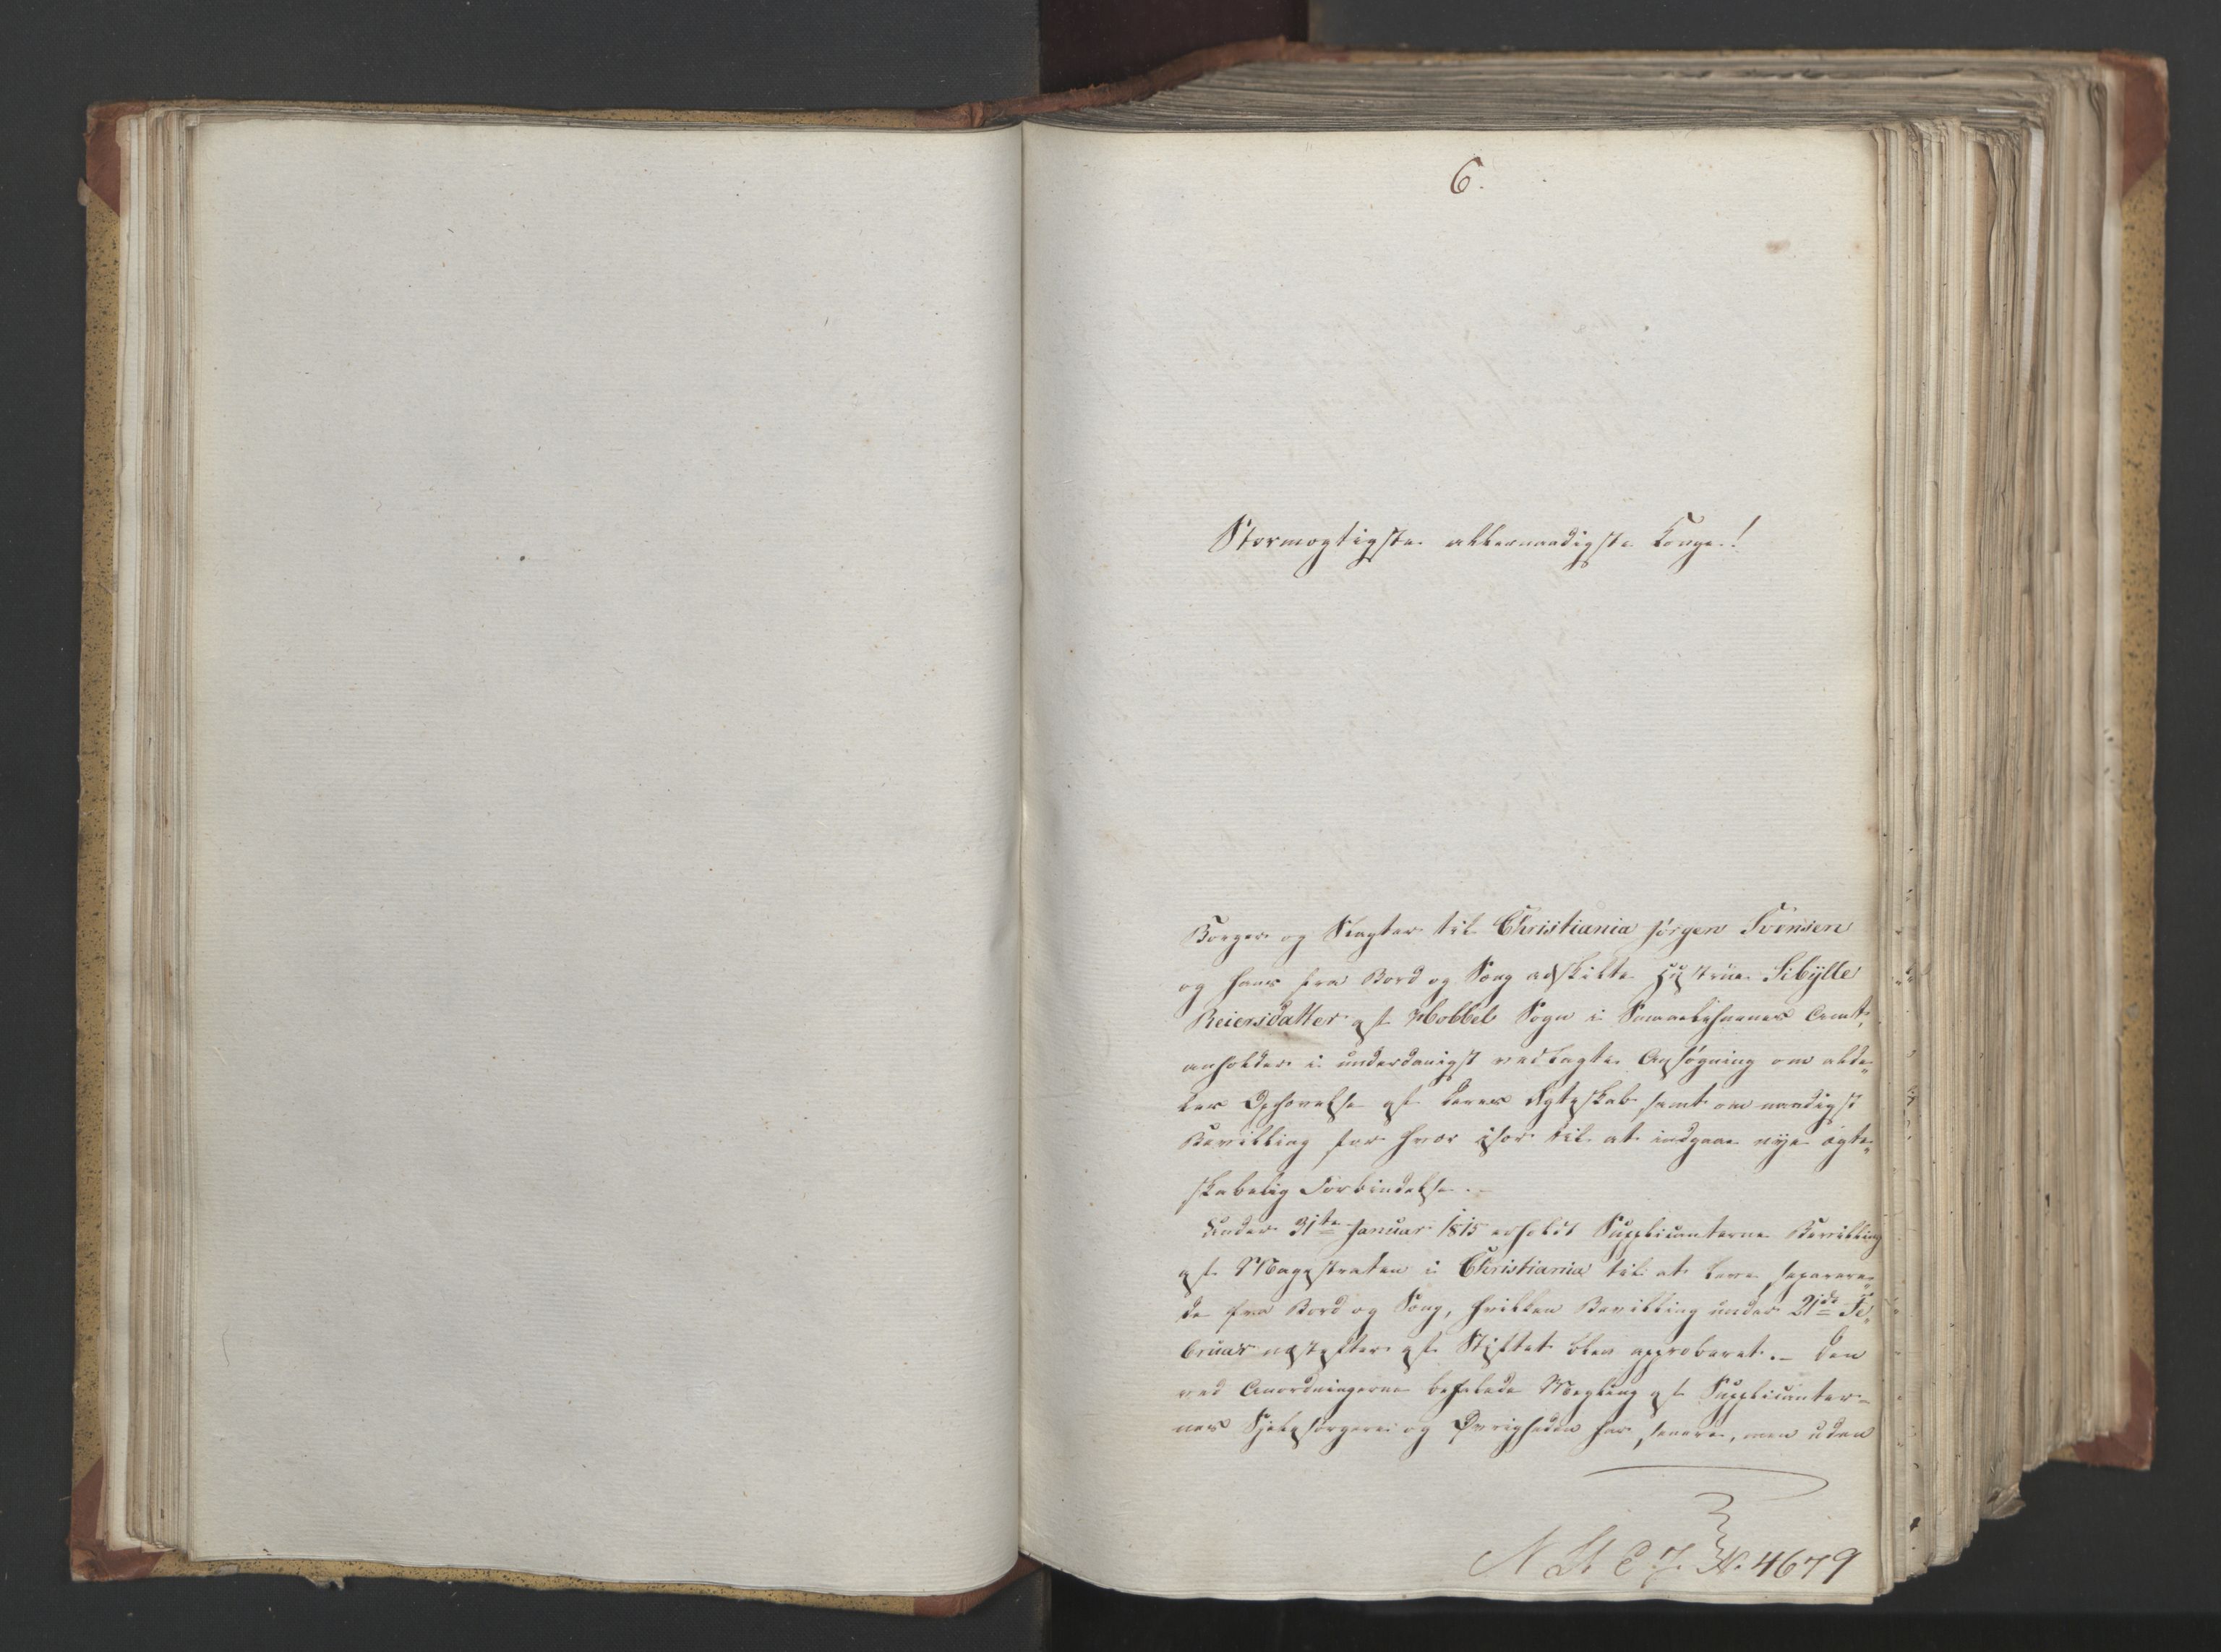 6.
Stormægtigste allernaadigste Konge!
Borger og Slagter til Christiania Jørgen Svensen
og hans fra Bord og Seng adskilte Hustrue Sibylle
Reiersdatter af Hobbel Sogn i Smaalehnenes Amt,
anholder i underdanigst vedlagte Ansøgning om alde„
les Ophævelse af deres Ægteskab samt om naadigst
Bevilling for hver især til at indgaae nye ægte„
skabelig Forbindelse. –
Under 31te Januar 1815 erholdt Supplicanterne Bevilling
af Magistraten i Christiania til at leve separere„
de fra Bord og Seng, hvilken Bevilling under 21de Fe„
bruar næstefter af Stiftet blev approberet. – Den
ved Anordningerne befalede Mægling af Supplicanter-
nes Sjelesørgere og Øvrigheden har senere, men uden
N. St. C. J. No. 4679